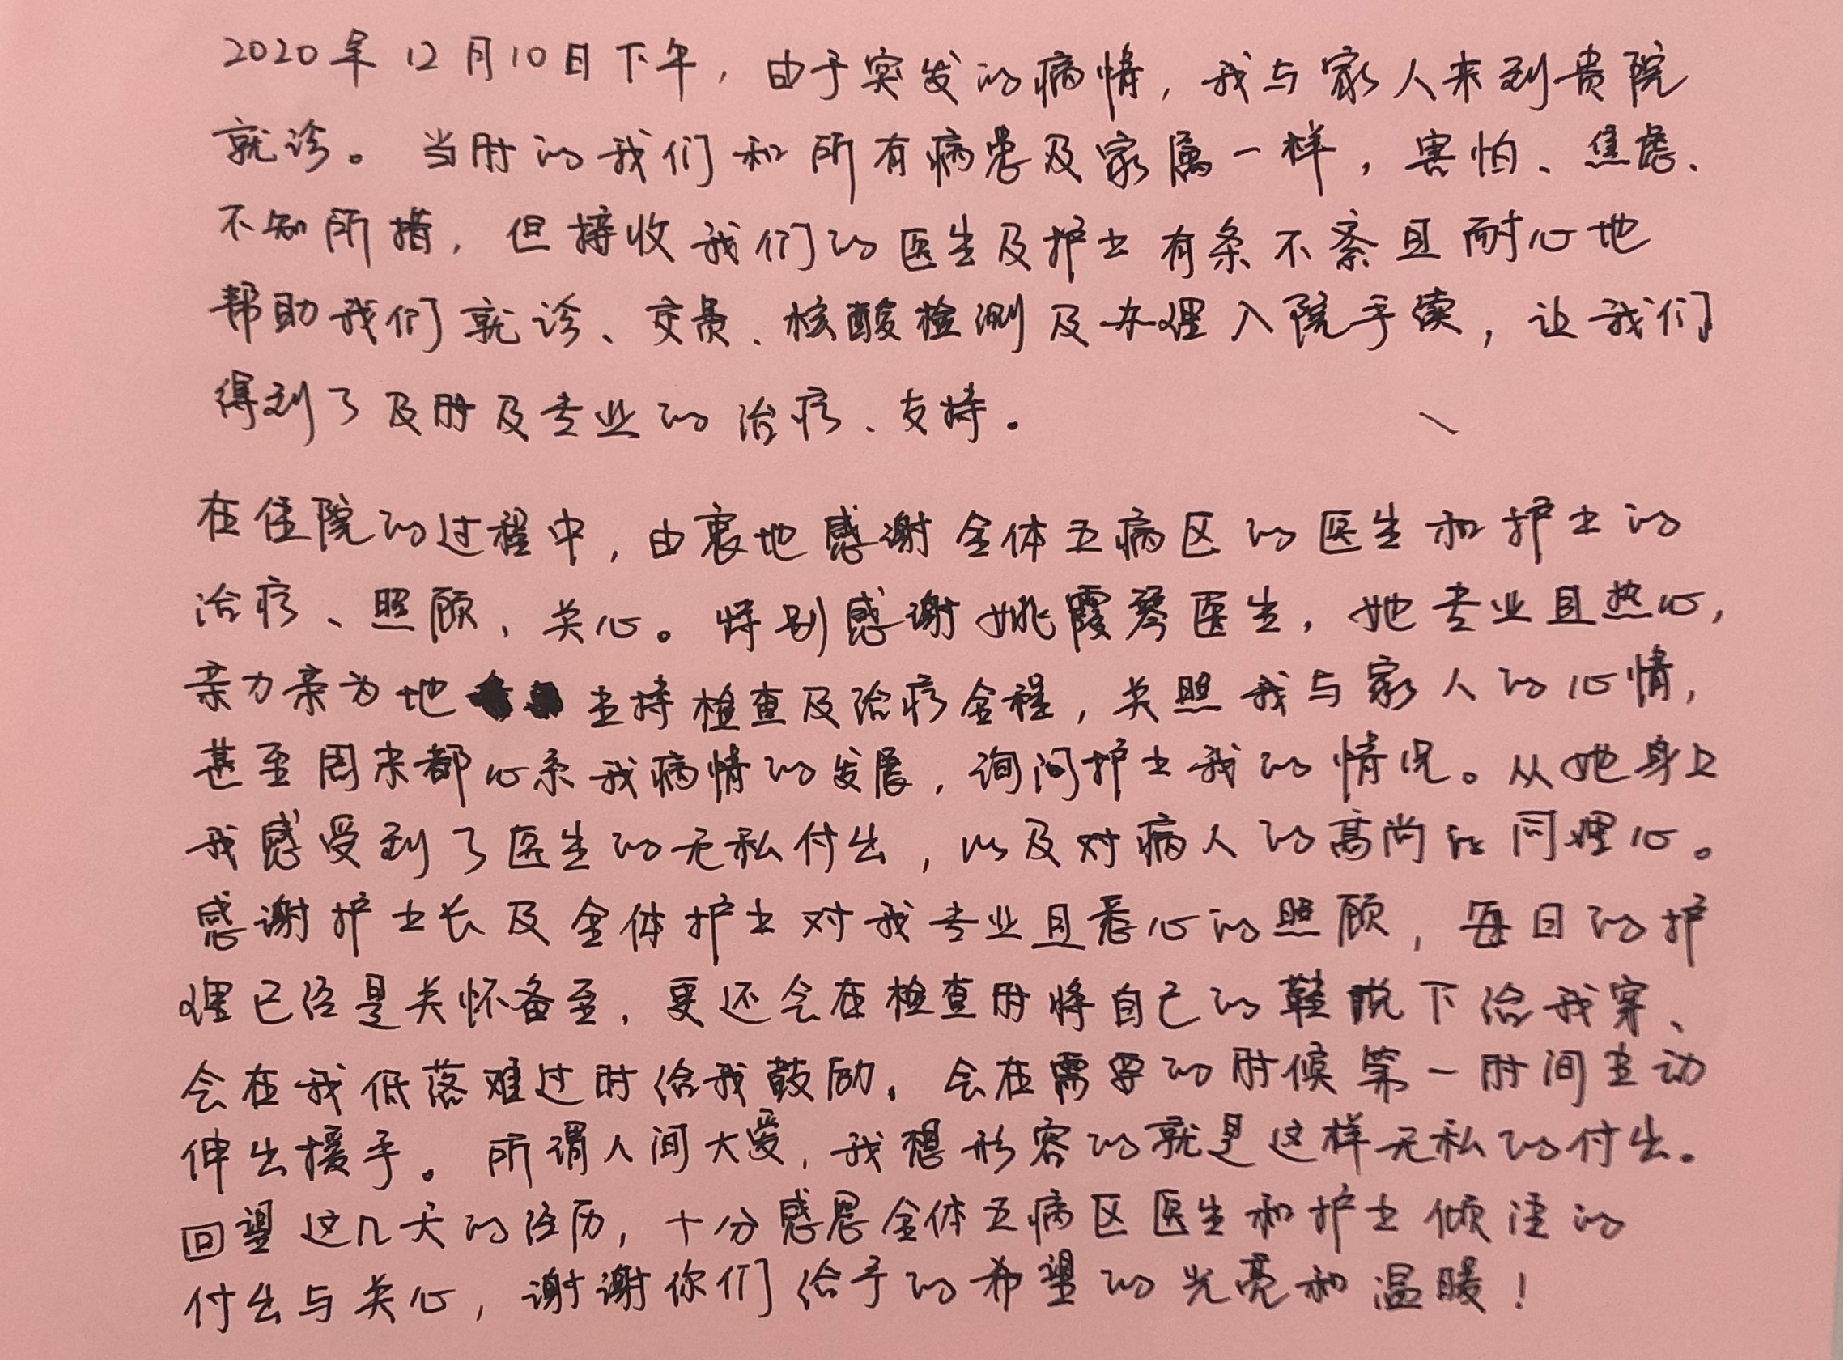 2020年12月10日下午，由于突发的病情，我与家人来到贵院
就诊。当时的我们和所有病患及家属一样，害怕、焦虑、
不知所措，但接收我们的医生及护士有条不紊且耐心地
帮助我们就诊、交费、核酸检测及办理入院手续，让我们
得到了及时及专业的治疗、支持。
在住院的过程中，由衷地感谢全体五病区的医生和护士的
治疗、照顾、关心。特别感谢姚霞琴医生，她专业且热心，
亲力亲为地主持检查及治疗全程，关照我与家人的心情，
甚至周末都心系我病情的发展，询问护士我的情况。从她身上
我感受到了医生的无私付出，以及对病人的高尚的同理心。
感谢护士长及全体护士对我专业且悉心的照顾，每日的护
理已经是关怀备至，更还会在检查时将自己的鞋脱下给我穿、
会在我低落难过时给我鼓励，会在需要的时候第一时间主动
伸出援手。所谓人间大爱，我想形容的就是这样无私的付出。
回望这几天的经历，十分感恩全体五病区医生和护士倾注的
付出与关心，谢谢你们给予的希望的光亮和温暖！